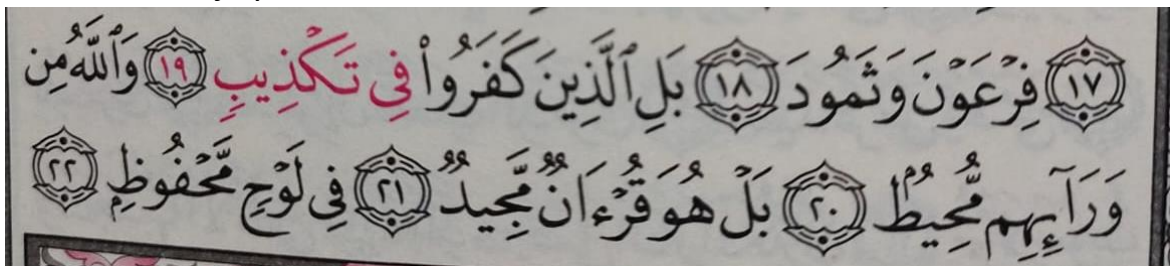 ١٧ فِرْعَوْنَ وَثَمُودَ ١٨ بَلِ ٱلَّذِينَ كَفَرُوا۟ فِى تَكْذِيبٍ ١٩ وَٱللَّهُ مِن
وَرَآئِهِم مُّحِيطٌۢ ٢٠ بَلْ هُوَ قُرْءَانٌ مَّجِيدٌ ٢١ فِى لَوْحٍ مَّحْفُوظٍۭ ٢٢